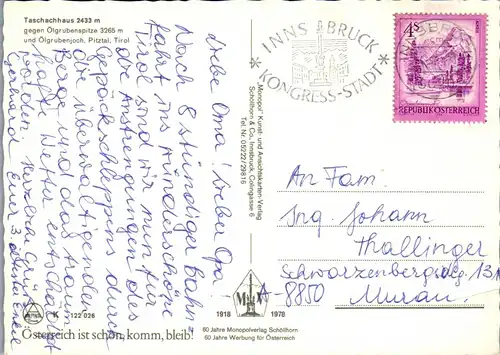 Taschachhaus 2433 m
gegen Ölgrubenspitze 3265 m
und Ölgrubenjoch, Pitztal, Tirol
Liebe Oma! Lieber Opa!
Nach 8 stündiger Bahn-
fahrt ins wunderschöne
Tirol sind wir nun für
die Anstrengungen des
Gepäckschleppens durch
die überwältigenden
Berge und das traum-
hafte Wetter entschädigt
worden. Herzliche Grüße
Eure 3 Enkel
K 122 026
Österreich ist schön, komm, bleib!
Monopol Kunst- und Ansichtskarten-Verlag
Schöllhorn & Co., Innsbruck, Colingasse 6
Tel. Nr. 05222/29816
1918 1978
60 Jahre Monopolverlag Schöllhorn
60 Jahre Werbung für Österreich
INNSBRUCK
* KONGRESS-STADT *
4 S
REPUBLIK ÖSTERREICH
An Fam.
Ing. Johann
Thallinger
Schwarzenbergsdlg. 131
A-8850
Murau